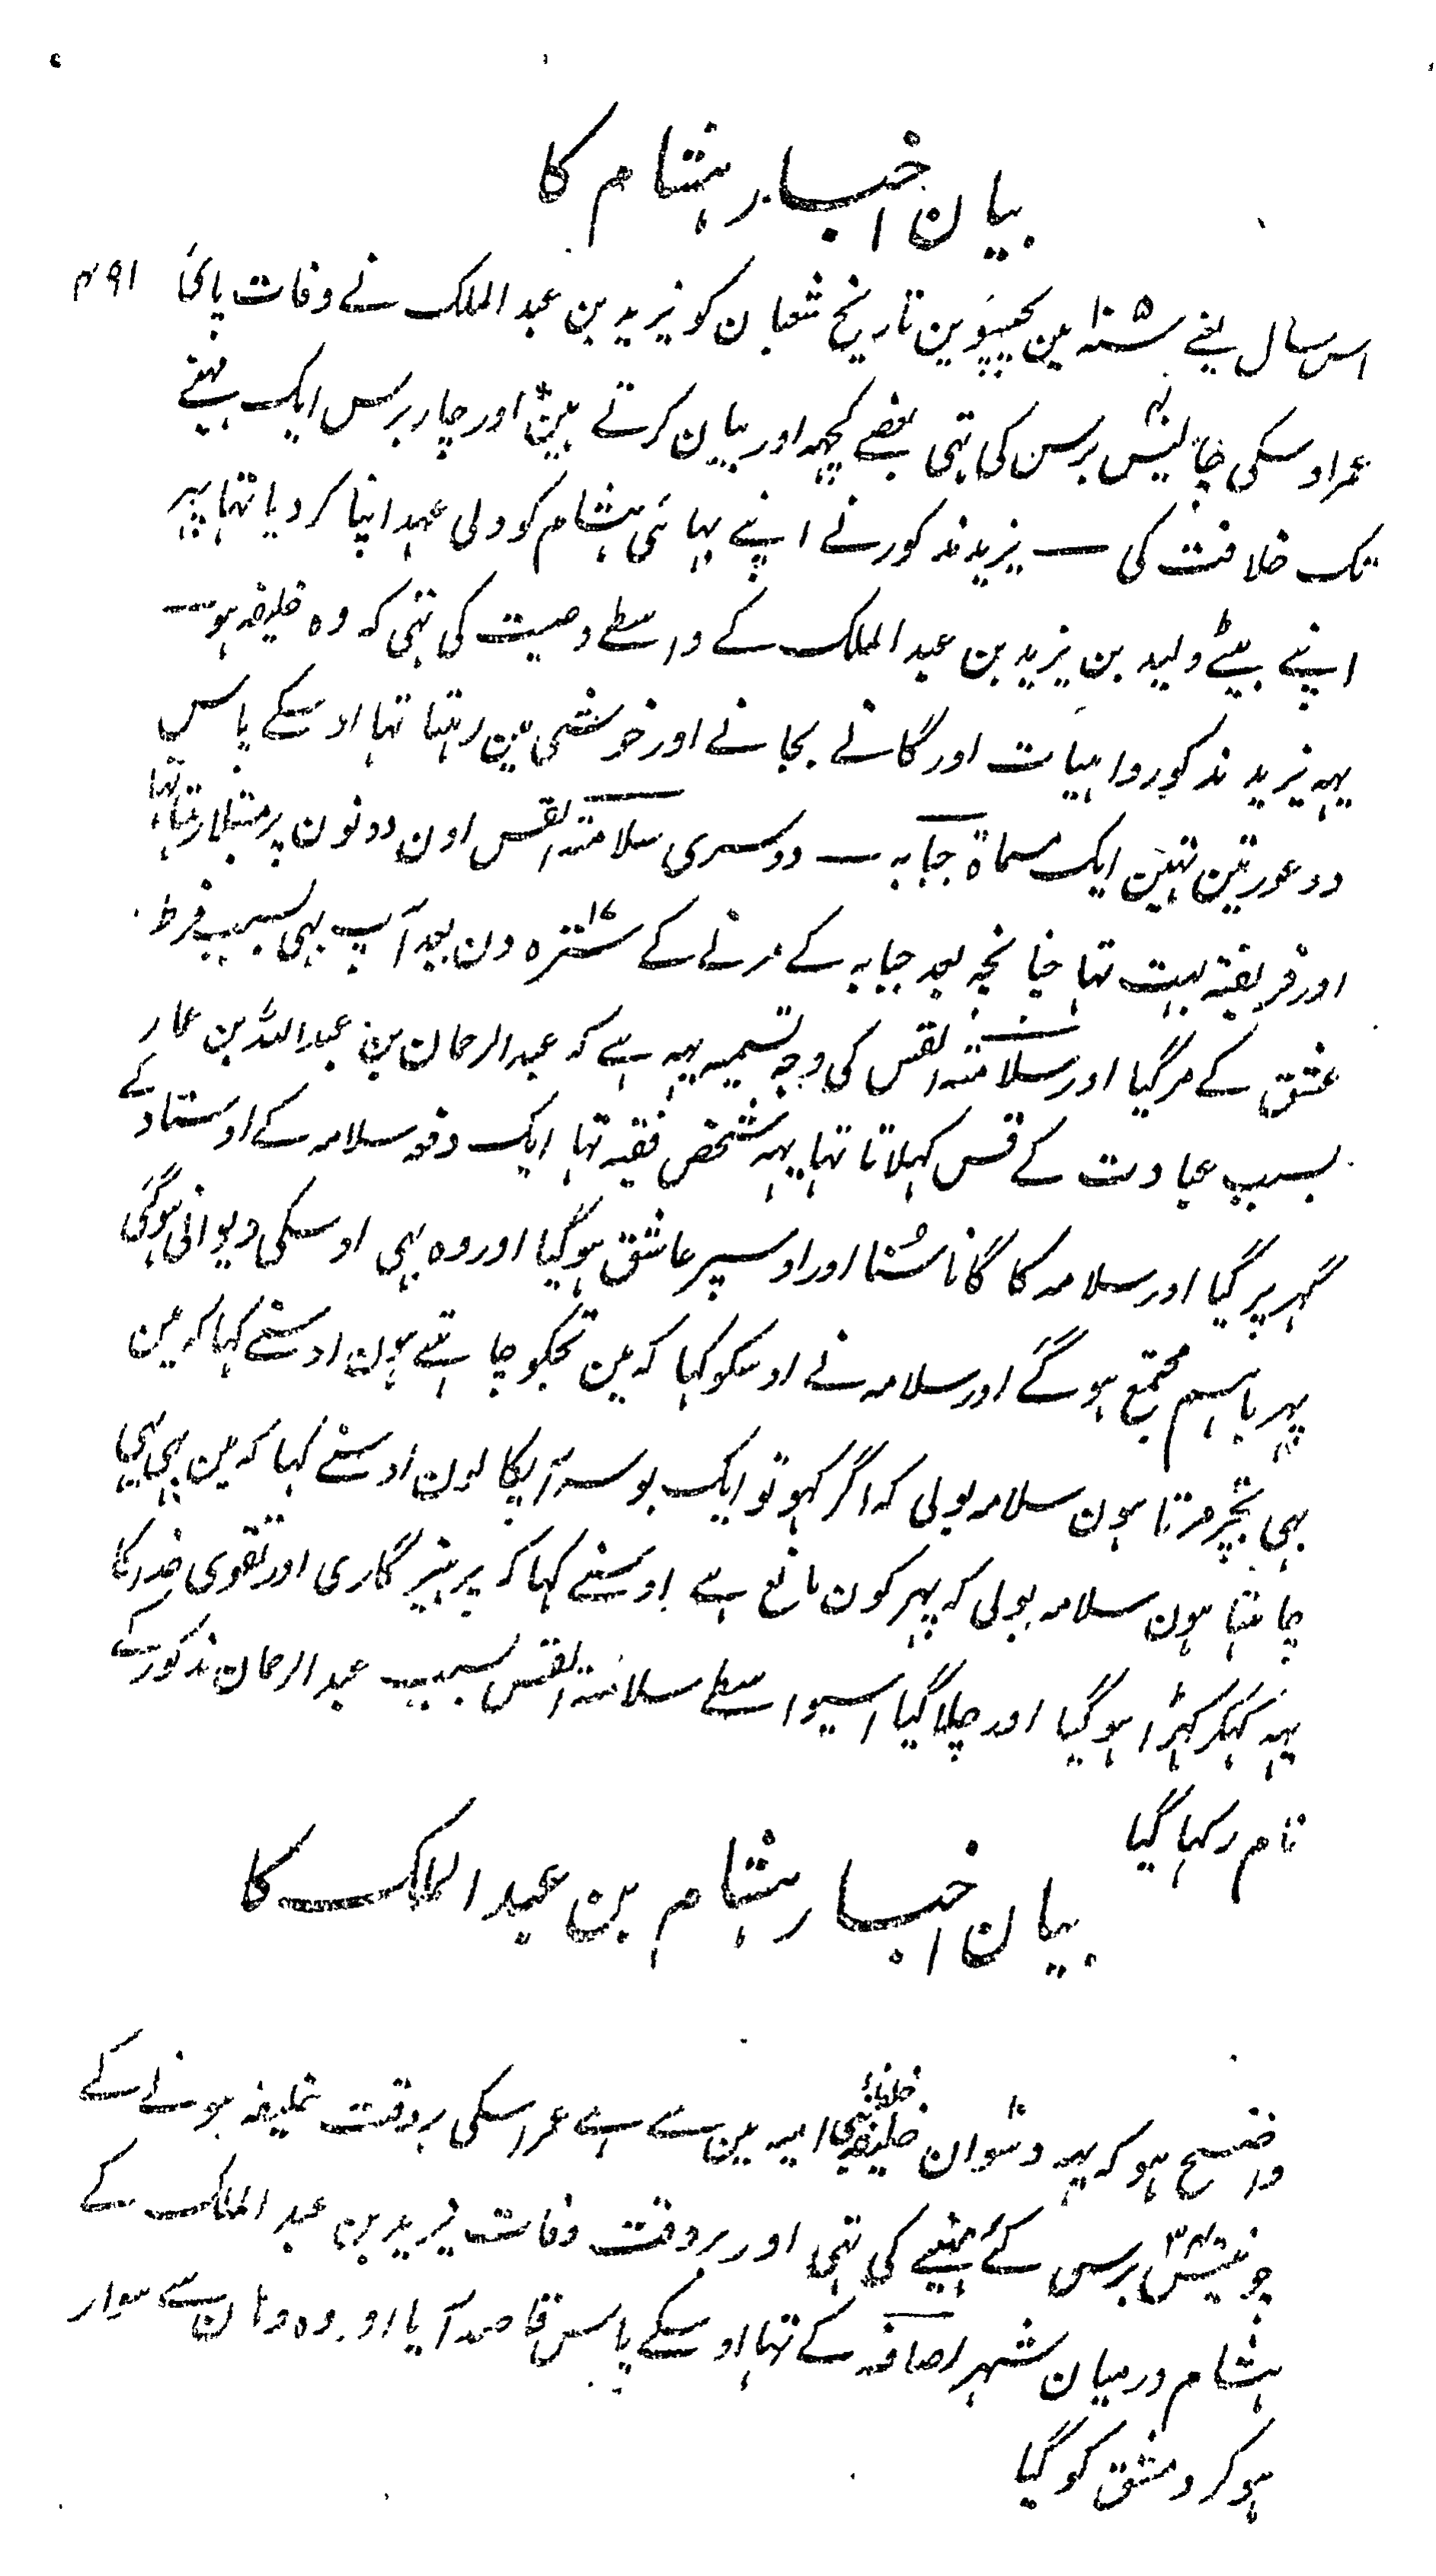 بیان اخبار ہشام کا
اس سال یعنے ۱۰۵ سنہ مین پچیسوین تاریخ شعبان کو یزید بن عبد الملک نے وفات پائی ۴۹۱
عمر اوسکی چالیس ۴۰ برس کی تہی بعضے کچہہ اور بیان کرتے ہین اور چار برس ایک مہینے
تک خلافت کی یزید مذکور نے اپنے بہائی ہشام کو ولی عہد اپنا کر دیا تہا پہر
اپنے بیٹے ولید بن یزید بن عبد الملک کے واسطے وصیت کی تہی کہ وہ خلیفہ ہو
یہہ یزید مذکور واہیات اور گانے بجانے اور خوشی مین رہتا تہا اوسکے پاس
دو عورتین تہین ایک مسماۃ حبابہ دوسری سلامتہ القس اون دونون پر مبتلا رہتا تہا
اور فریفتہ بہت تہا چنانچہ بعد حبابہ کے مرنے کے سترہ ۱۷ دن بعد آپ بہی بسبب فرط
عشق کے مر گیا اور سلامتہ القس کی وجہ تسمیہ یہہ ہے کہ عبد الرحمان بن عبد اللہ بن عمار
بسبب عبادت کے قس کہلاتا تہا یہہ شخص فقیہ تہا ایک دفعہ سلامہ کے اوستاد کے
گہر پر گیا اور سلامہ کا گانا سُنا اور اوسپر عاشق ہو گیا اور وہ بہی اوسکی دیوانی ہوگئی
پہر باہم مجتمع ہو گے اور سلامہ نے اوسکو کہا کہ مین تجکو چاہتے ہون اوسنے کہا کہ مین
بہی تجپر مرتا ہون سلامہ بولی کہ اگر کہو تو ایک بوسہ آپکا لون اوسنے کہا کہ مین بہی یہی
چاہتا ہون سلامہ بولی کہ پہر کون مانع ہے اوسنے کہا کہ پرہیزگاری اور تقوی خدا کا
یہہ کہکر کہڑا ہو گیا اور چلا گیا اسیواسطے سلامتہ القس بسبب عبد الرحمان مذکور کے
نام رکہا گیا
بیان اخبار ہشام بن عبد الملک کا
واضح ہو کہ یہہ دسوان ۱۰ خلیفہ خلفاء بنی امیہ مین سے ہے عمر اسکی بروقت خلیفہ ہونے کے
چونتیس ۳۴ برس کئے مہینے کی تہی اور بروقت وفات یزید بن عبد الملک کے
ہشام درمیان شہر رصافہ کے تہا اوسکے پاس قاصد آیا اور وہ وہان سے سوار
ہوکر دمشق کو گیا